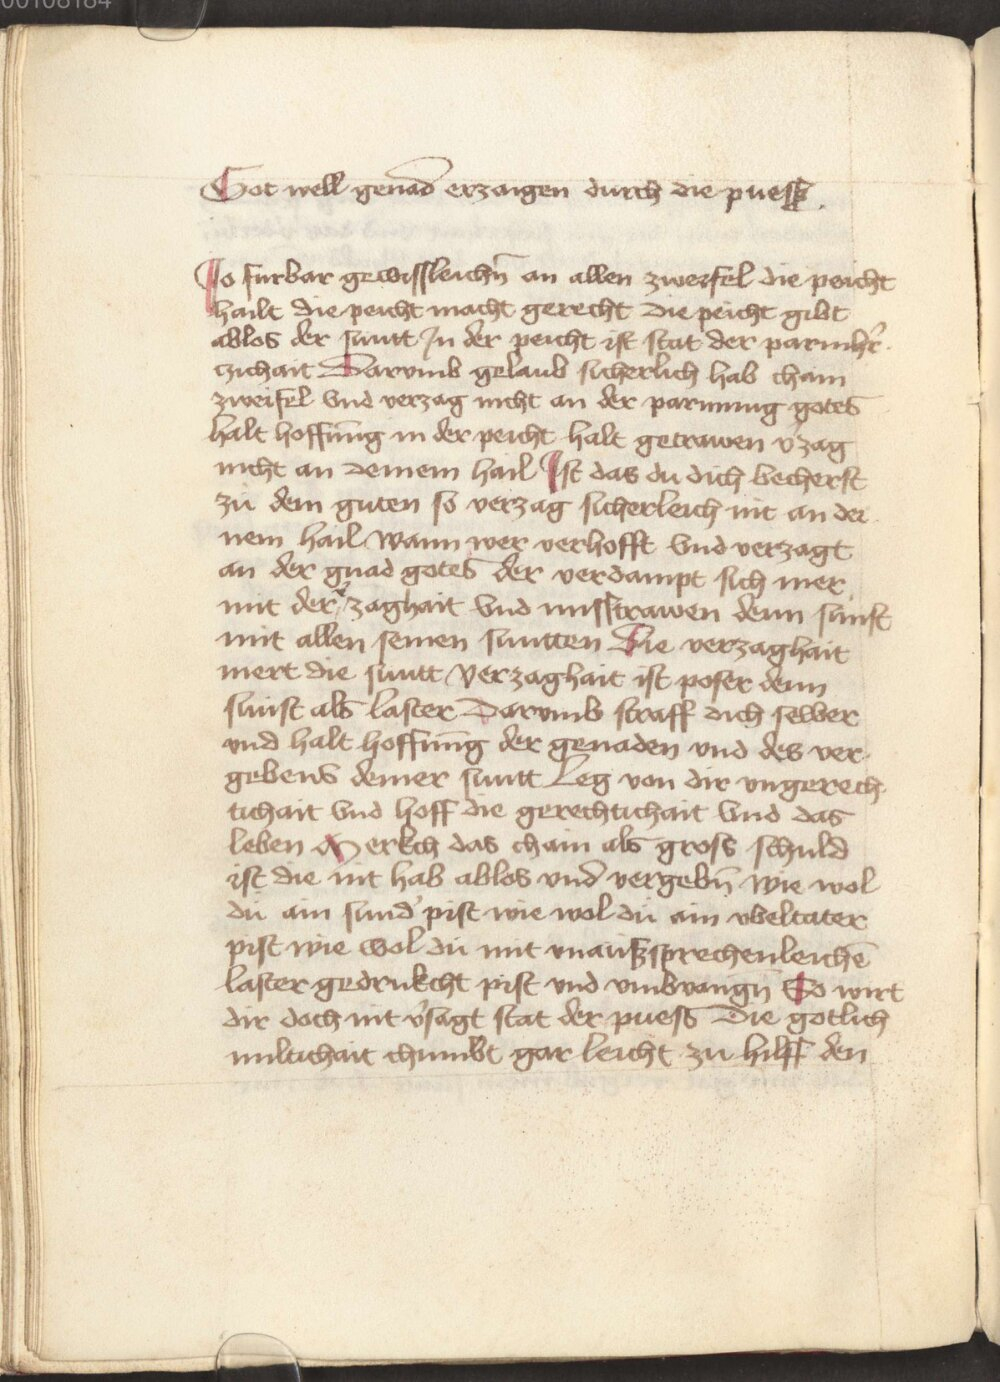 00108184
Got well genad erzaigen durch die puess.
Jo furbar gewissleichn̄ an allen zweifel die peicht
hailt die peicht macht gerecht die peicht gibt
ablos der suntt Jn der peicht ist stat der parmhr̄
czichait Darvmb gelaub sicherlich hab chain
zweifel vnd verzag nicht an der parmung gotes
halt hoffnūg in der peicht halt getrawen v̾zag
nicht an deinem hail Jst das du dich becherst
zu dem guten so verzag sicherleich nit an dei
nem hail wann wer verhofft vnd verzagt
an der gnad gotes der verdampt sich mer
mit der zaghait vnd misstrawen denn sunst
mit allen seinen suntten Die verzaghait
mert die suntt Verzaghait ist poser denn
sunst als laster Darvmb straff dich selber
vnd halt hoffnūg der genaden vnd des ver
gebens deiner suntt Leg von dir vngerech
tichait vnd hoff die gerechtichait vnd das
leben Merkch das chain als gross schuld
ist die nit hab ablos vnd vergebn̄ wie wol
du ain sund̾ pist wie wol du ain vbeltater
pist wie wol du mit vnaußsprechenleichē
laster gedrukcht pist vnd vmbvangn̄ So wirt
dir doch nit v̾sagt stat der puess Die gotlich
miltichait chumbt gar leicht zu hilff den